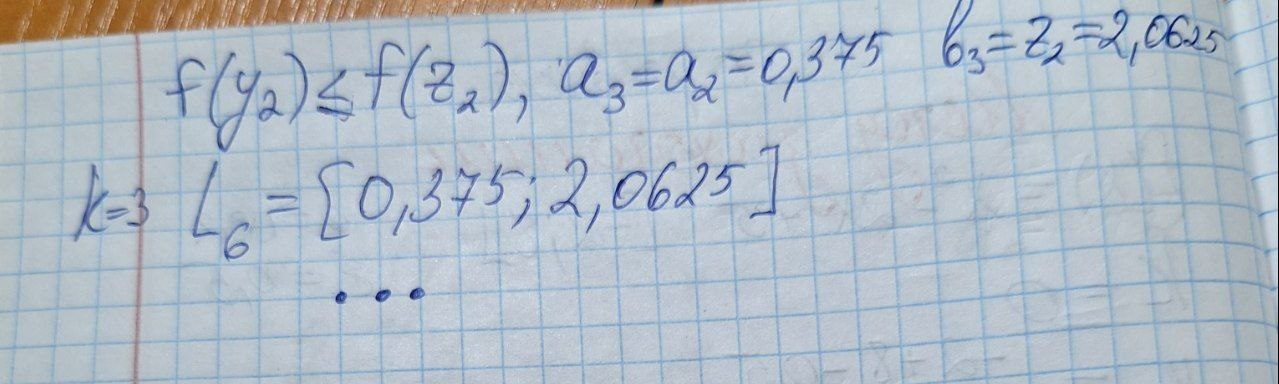 f(y₂) ≤ f(z₂), a₃ = a₂ = 0,375 b₃ = z₂ = 2,0625
k=3 L₆ = [0,375; 2,0625]
...